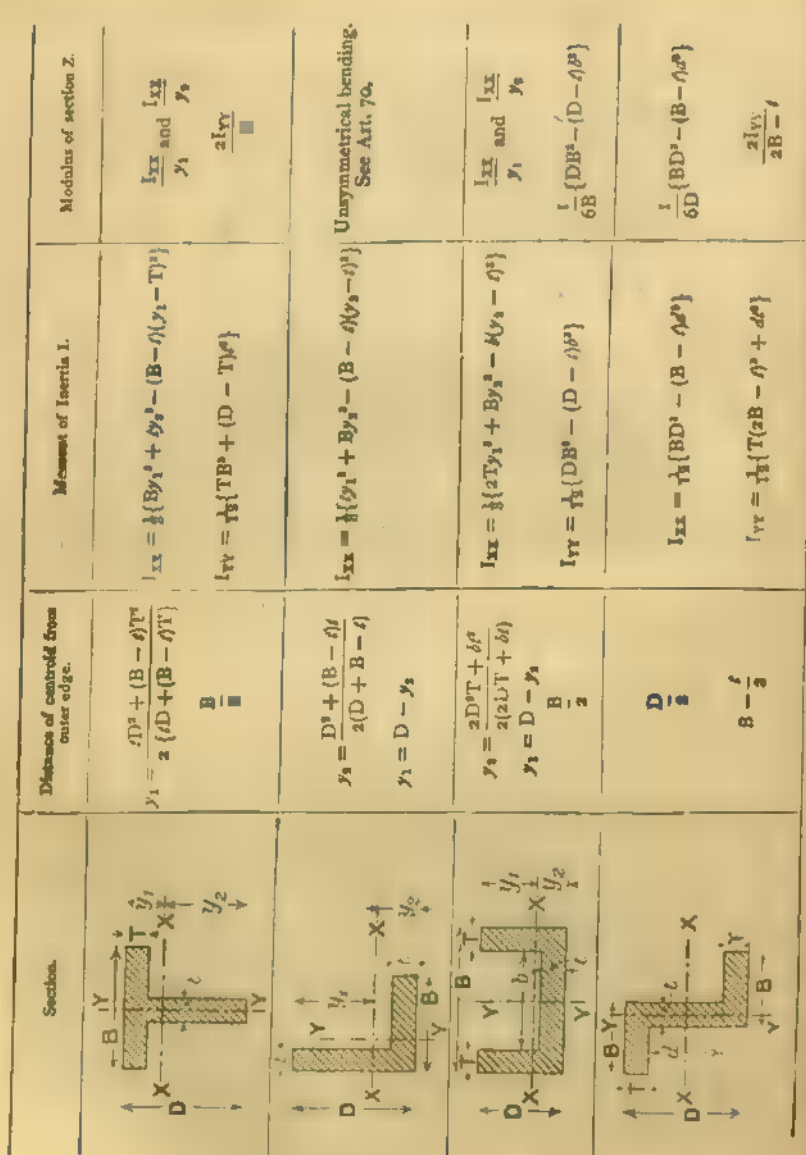 Section.
Distance of centroid from outer edge.
Moment of Inertia I.
Modulus of section Z.
B
Y
T
y₁
X X
D
y₂
t
Y
y₁ = tD² + (B − t)T² / 2{tD + (B − t)T}
B/
I_XX = ⅓{By₁³ + ty₂³ − (B − t)(y₁ − T)³}
I_YY = 1/12{TB³ + (D − T)t³}
I_XX/y₁ and I_XX/y₂
2I_YY/
t
Y
y₁
D
X X
y₂
t
B
Y
y₂ = D² + (B − t)t / 2(D + B − t)
y₁ = D − y₂
I_XX = ⅓{ty₁³ + By₂³ − (B − t)(y₂ − t)³}
Unsymmetrical bending.
See Art. 70.
T B T
Y
b
y₁
D
X X
y₂
t
Y
y₂ = 2D²T + bt² / 2(2DT + bt)
y₁ = D − y₂
B/2
I_XX = ⅓{2Ty₁³ + By₂³ − b(y₂ − t)³}
I_YY = 1/12{DB³ − (D − t)b³}
I_XX/y₁ and I_XX/y₂
1/6B{DB³ − (D − t)b³}
B Y
T
t
d
D
X
Y Y
B
D/2
B − t/2
I_XX = 1/12{BD³ − (B − t)d³}
I_YY = 1/12{T(2B − t)³ + dt³}
1/6D{BD³ − (B − t)d³}
2I_YY/2B − t